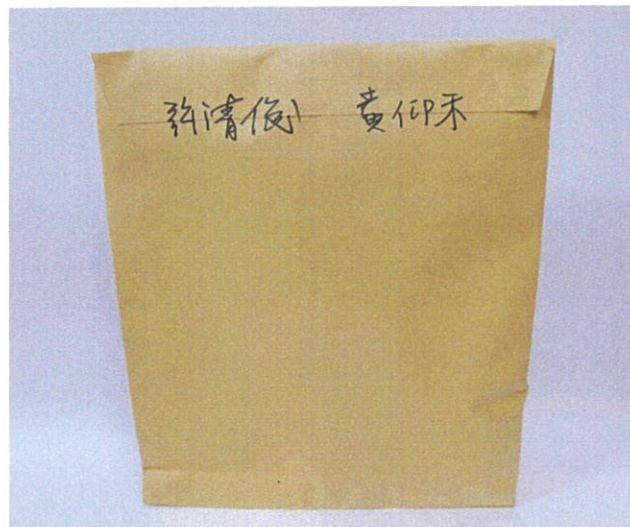 許清俊 黃仰禾